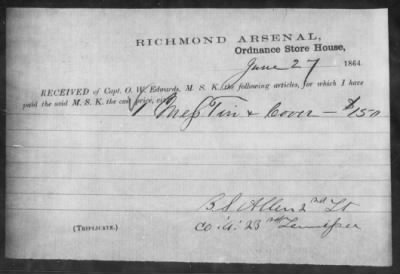 RICHMOND ARSENAL,
Ordnance Store House,
June 27 1864
RECEIVED of Capt. O. W. Edwards, M. S. K., the following articles, for which I have
paid the said M. S. K. the cost price, viz:
1 Mess Tin & Cover — $1.50
B. S. Allen 2nd Lt
Co. "G" 23rd
(TRIPLICATE.)